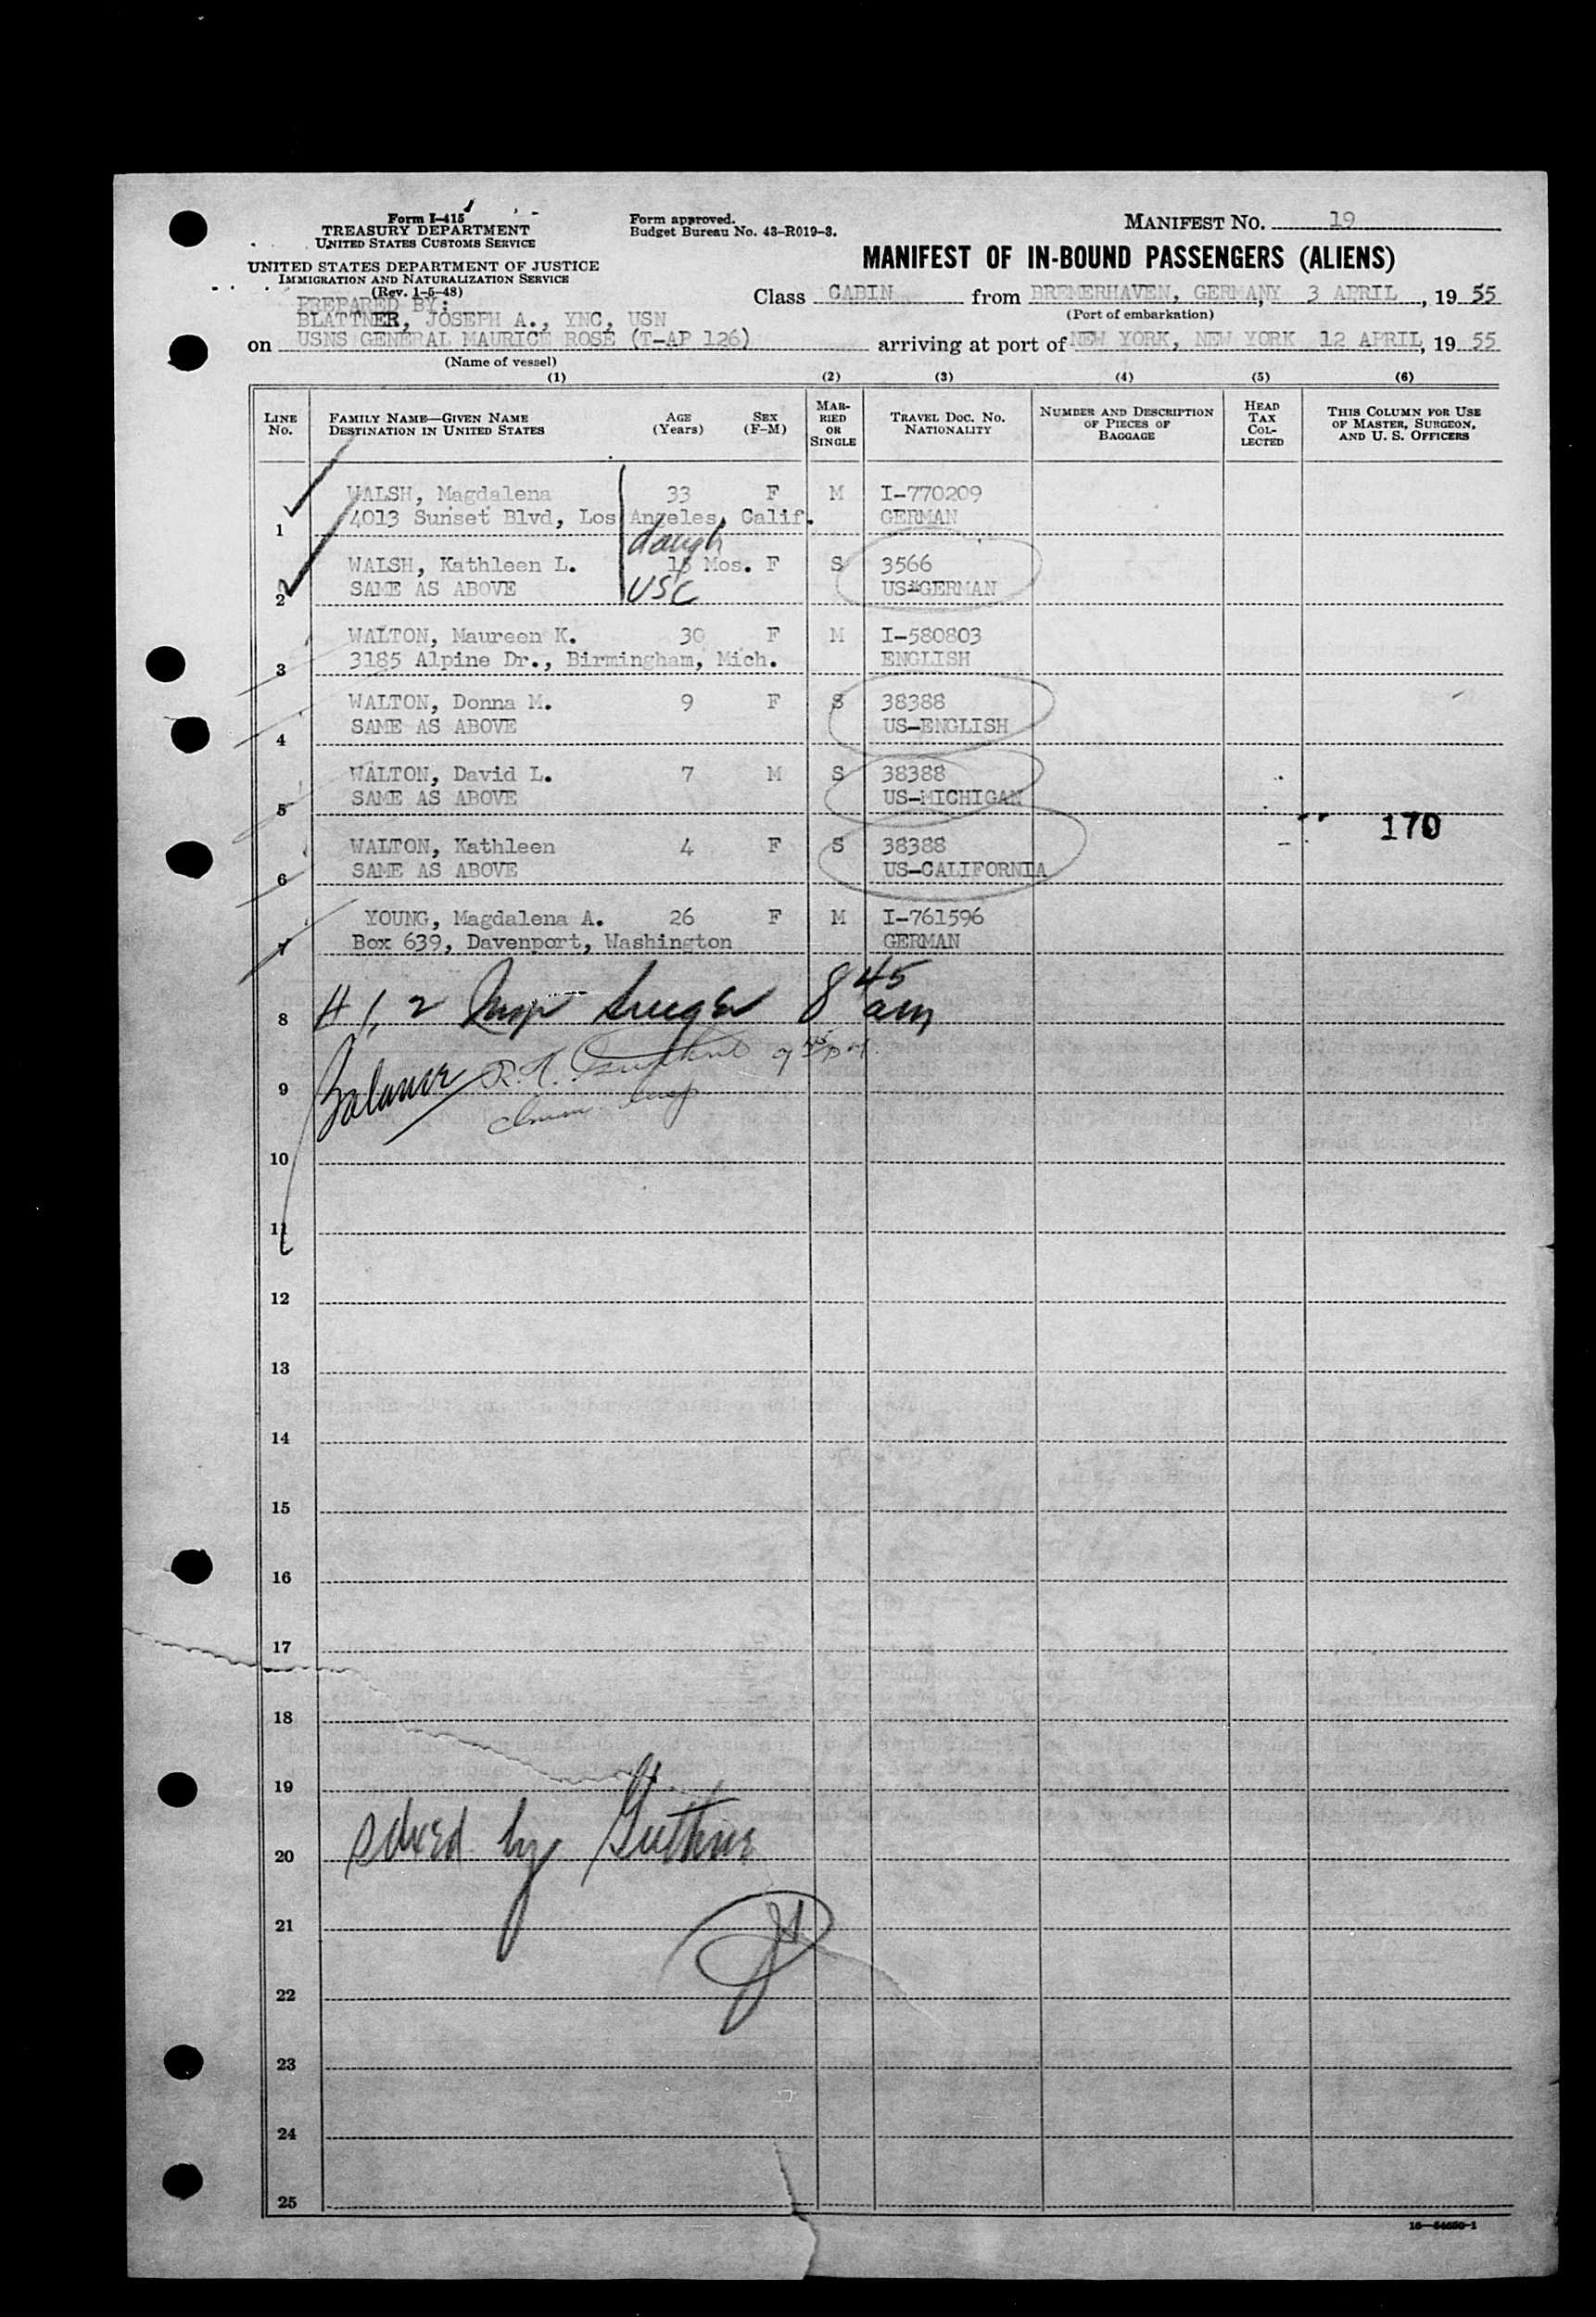 Form I-415
TREASURY DEPARTMENT
UNITED STATES CUSTOMS SERVICE
UNITED STATES DEPARTMENT OF JUSTICE
IMMIGRATION AND NATURALIZATION SERVICE
(Rev. 1-5-48)
Form approved.
Budget Bureau No. 43-R019-3.
MANIFEST NO. 19
MANIFEST OF IN-BOUND PASSENGERS (ALIENS)
PREPARED BY:
BLATTNER, JOSEPH A., YNC, USN
Class CABIN from BREMERHAVEN, GERMANY, 3 APRIL, 19 55
(Port of embarkation)
on USNS GENERAL MAURICE ROSE (T-AP 126) arriving at port of NEW YORK, NEW YORK 12 APRIL, 19 55
(Name of vessel)
(1) (2) (3) (4) (5) (6)
LINE No. FAMILY NAME—GIVEN NAME DESTINATION IN UNITED STATES AGE (Years) SEX (F-M) MARRIED OR SINGLE TRAVEL DOC. NO. NATIONALITY NUMBER AND DESCRIPTION OF PIECES OF BAGGAGE HEAD TAX COLLECTED THIS COLUMN FOR USE OF MASTER, SURGEON, AND U. S. OFFICERS
WALSH, Magdalena 33 F M I-770209
1 4013 Sunset Blvd, Los Angeles, Calif. GERMAN
daugh
WALSH, Kathleen L. 15 Mos. F S 3566
2 SAME AS ABOVE USC US-GERMAN
WALTON, Maureen K. 30 F M I-580803
3 3185 Alpine Dr., Birmingham, Mich. ENGLISH
WALTON, Donna M. 9 F S 38388
4 SAME AS ABOVE US-ENGLISH
WALTON, David L. 7 M S 38388
5 SAME AS ABOVE US-MICHIGAN
170
WALTON, Kathleen 4 F S 38388
6 SAME AS ABOVE US-CALIFORNIA
YOUNG, Magdalena A. 26 F M I-761596
7 Box 639, Davenport, Washington GERMAN
8 # 1, 2 Insp 8 45 am
9 Balance R.
10
11
12
13
14
15
16
17
18
19
20 by Guthrie
21
22
23
24
25